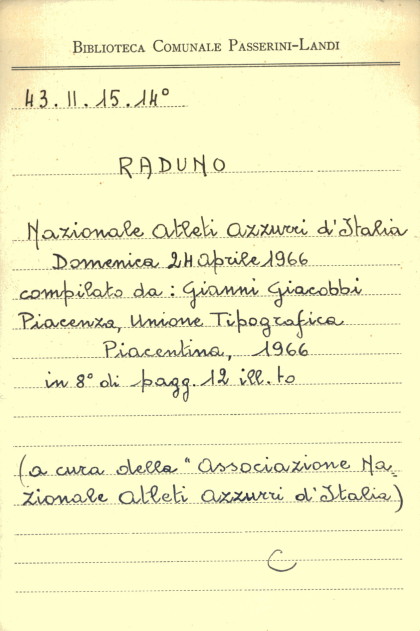 BIBLIOTECA COMUNALE PASSERINI-LANDI
43.II.15.14°
RADUNO
Nazionale Atleti Azzurri d'Italia
Domenica 24 Aprile 1966
compilato da: Gianni Giacobbi
Piacenza, Unione Tipografica
Piacentina, 1966
in 8° di pagg. 12 ill.to
(a cura della "Associazione Na=
zionale Atleti Azzurri d'Italia)
C